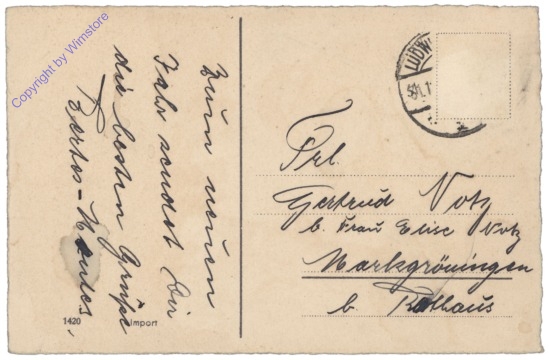 Zum neuen
Jahr sendet Dir
die besten Grüße
1420
Import
LUDW
31.1
Frl.
Gertrud Votz
b. Frau Elise Votz
Markgröningen
b. Rathaus
Copyright by Wimstore